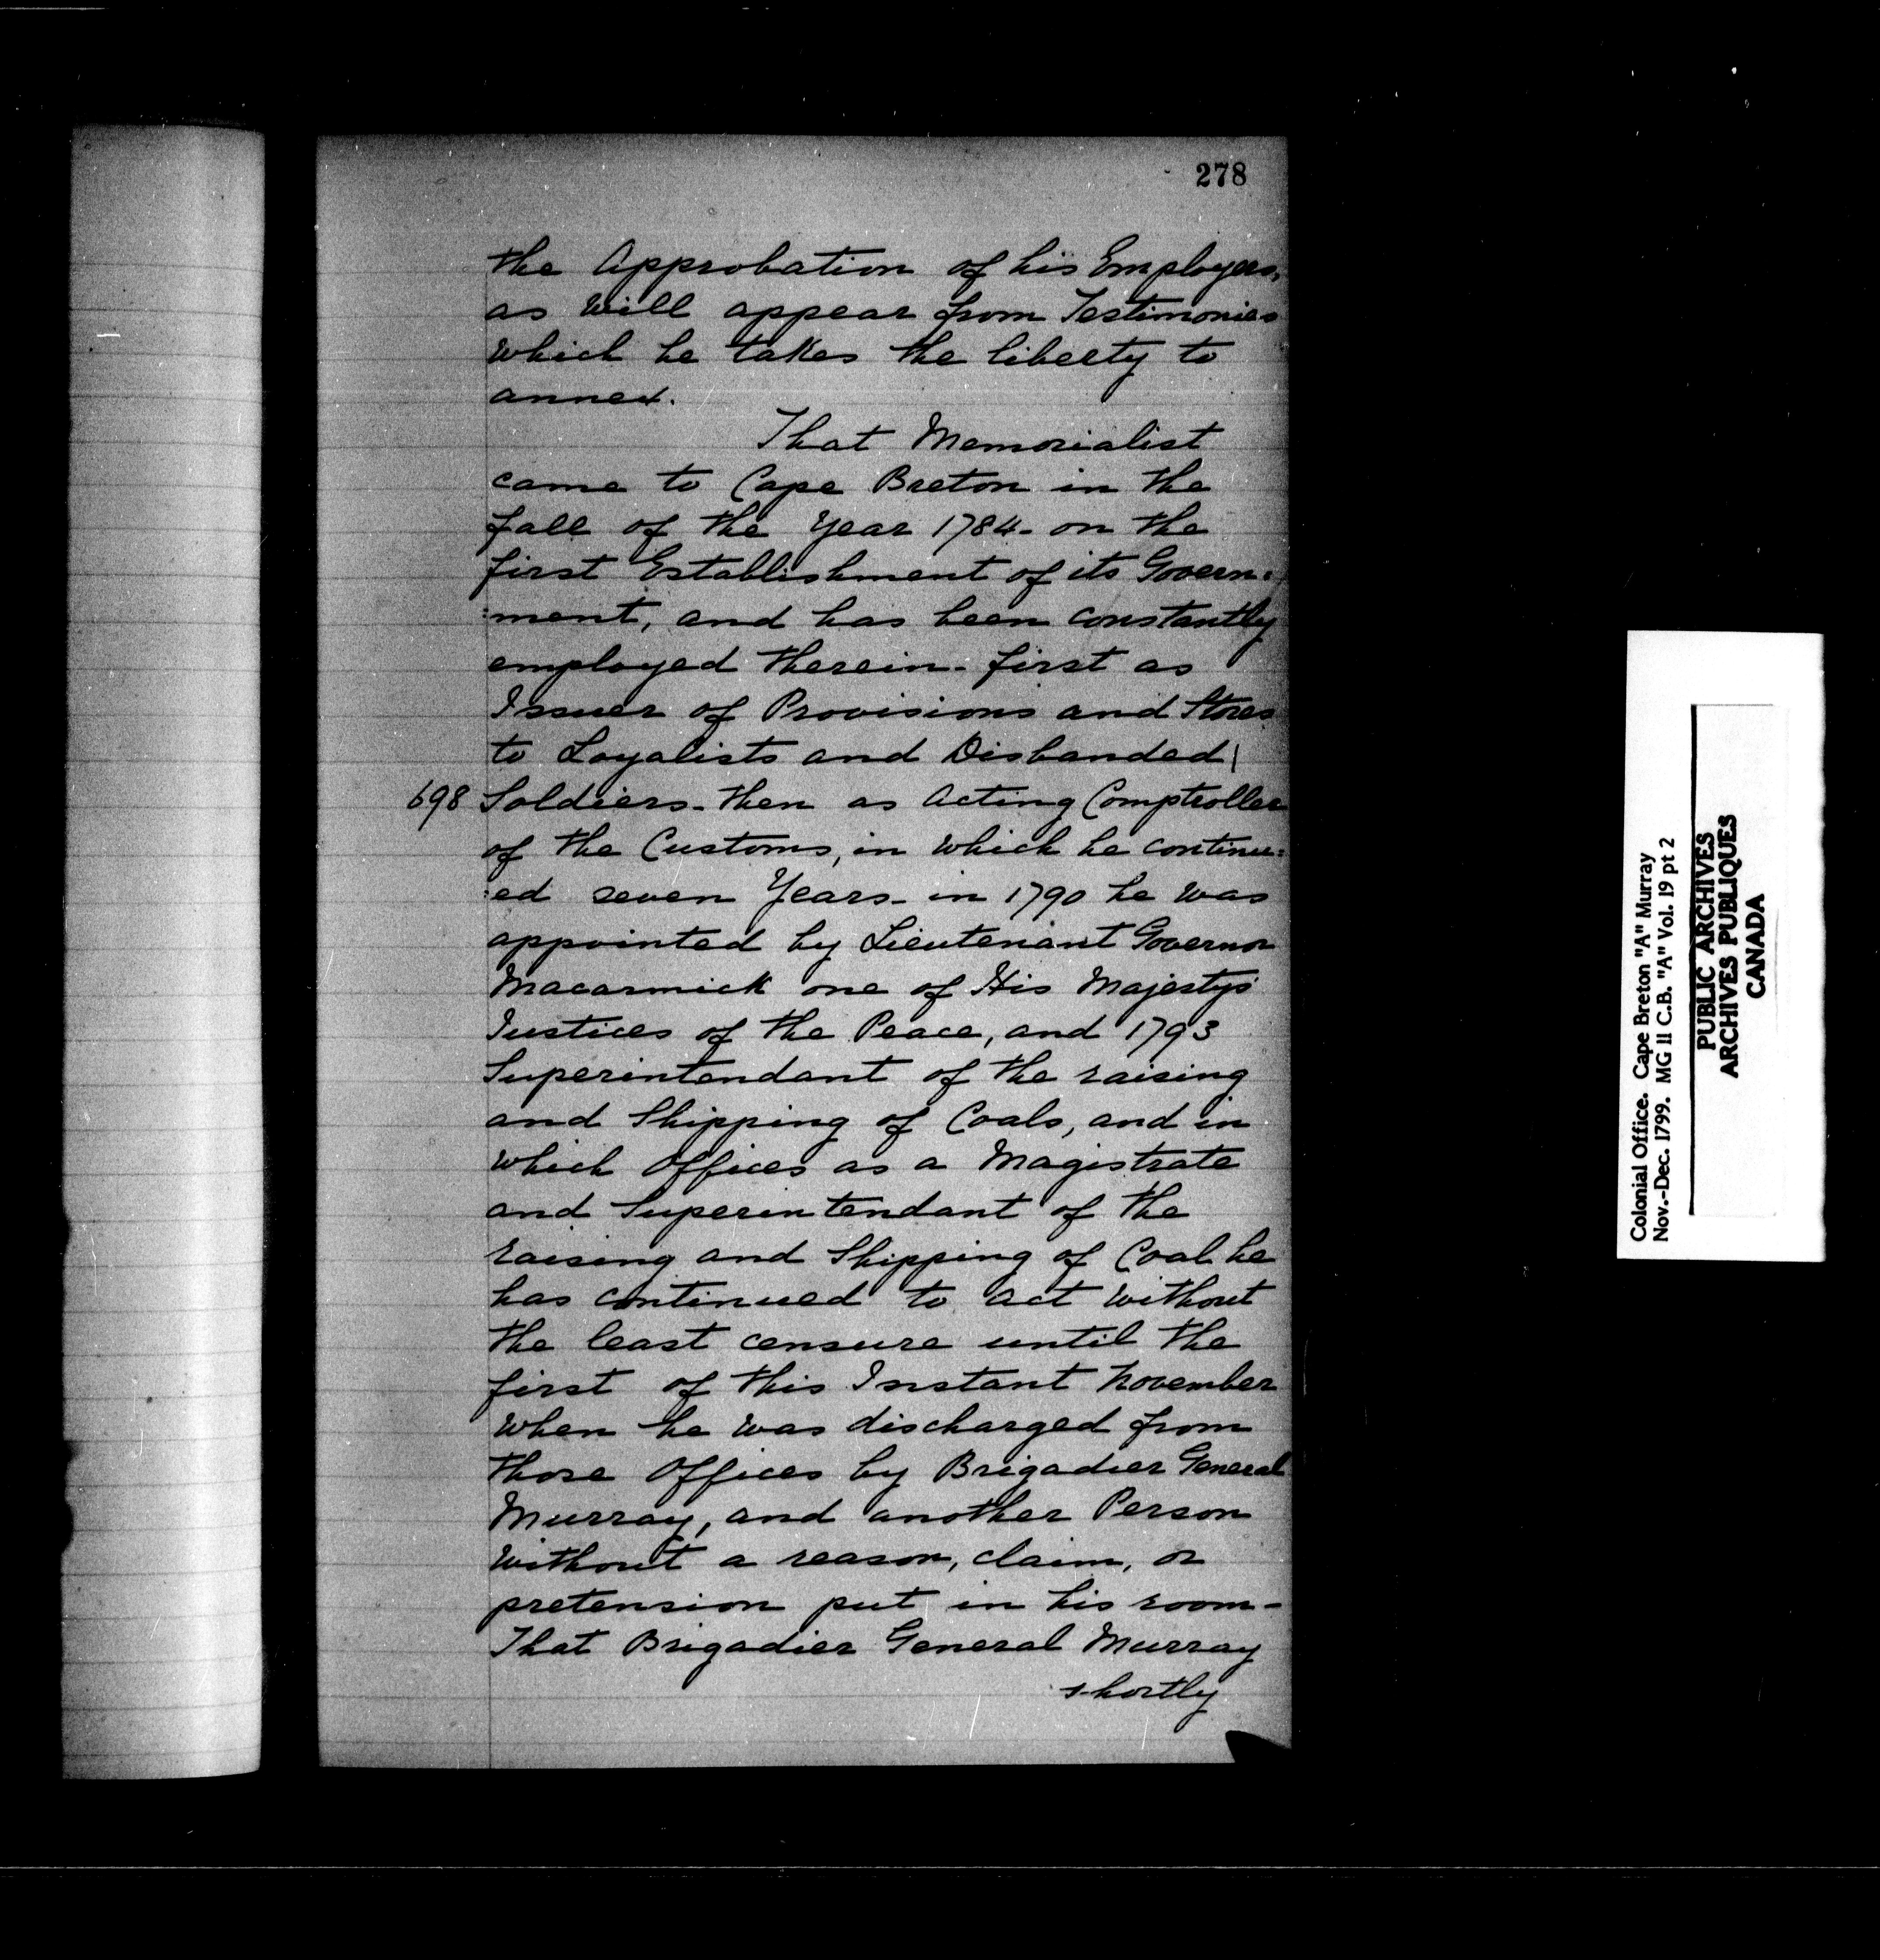 278
the Approbation of his Employers,
as will appear from Testimonies
which he takes the liberty to
annex.
That Memorialist
came to Cape Breton in the
fall of the Year 1784 - on the
first Establishment of its Govern:
:ment, and has been constantly
employed therein - first as
Issuer of Provisions and Stores
to Loyalists and Disbanded
698 Soldiers - then as Acting Comptroller
of the Customs, in which he continu:
:ed seven Years - in 1790 he was
appointed by Lieutenant Governor
Macarmick one of His Majesty's
Justices of the Peace, and 1793
Superintendant of the raising
and Shipping of Coals, and in
which Offices as a Magistrate
and Superintendant of the
raising and Shipping of Coal he
has continued to act without
the least censure until the
first of this Instant November
when he was discharged from
those Offices by Brigadier General
Murray, and another Person
without a reason, claim, or
pretension put in his room -
That Brigadier General Murray
shortly
Colonial Office. Cape Breton "A" Murray
Nov.-Dec. 1799. MG 11 C.B. "A" Vol. 19 pt 2
PUBLIC ARCHIVES
ARCHIVES PUBLIQUES
CANADA